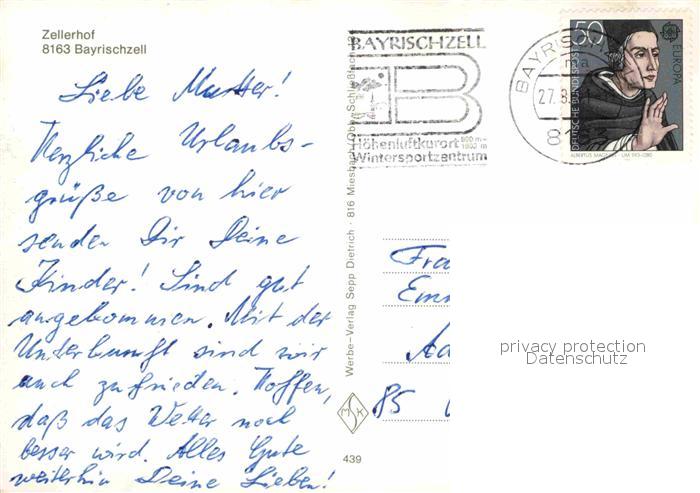 Zellerhof
8163 Bayrischzell
Liebe Mutter!
Herzliche Urlaubs-
grüße von hier
senden Dir Deine
Kinder! Sind gut
angekommen. Mit der
Unterkunft sind wir
auch zufrieden. Hoffen,
daß das Wetter noch
besser wird. Alles Gute
weiterhin Deine Lieben!
BAYRISCHZELL
B
Höhenluftkurort
800 m–
Wintersportzentrum
BAYRISC
27.8.
DEUTSCHE BUNDESPOST
50
EUROPA
ALBERTUS MAGNUS
Werbe-Verlag Sepp Dietrich · 816 Miesbach/Obb.
MSK
439
Fra
Emm
85
privacy protection
Datenschutz